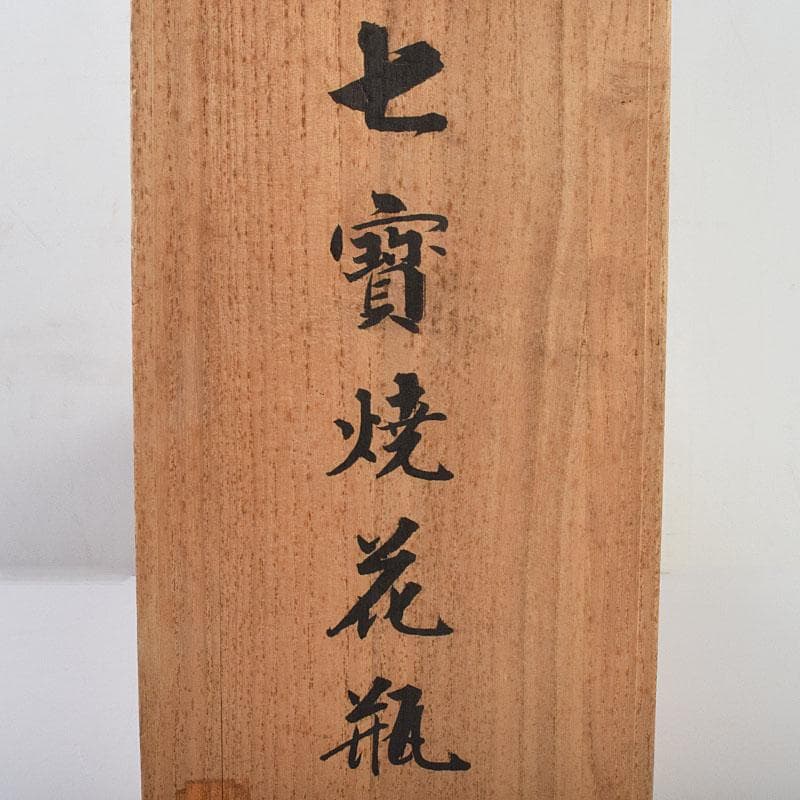 七寳焼花瓶